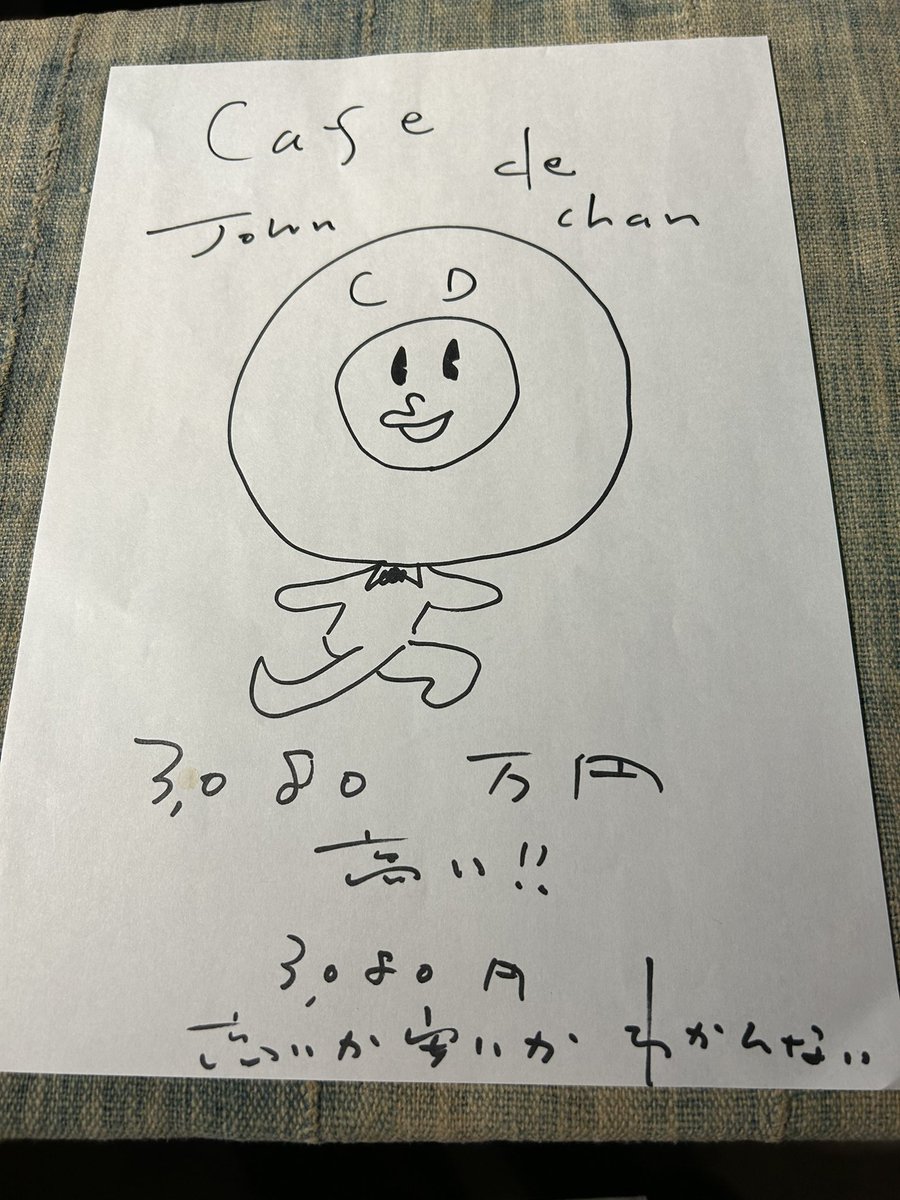 Cafe de
John chan
C D
3,080 万円
高い!!
3,080 円
高いか安いか わかんない